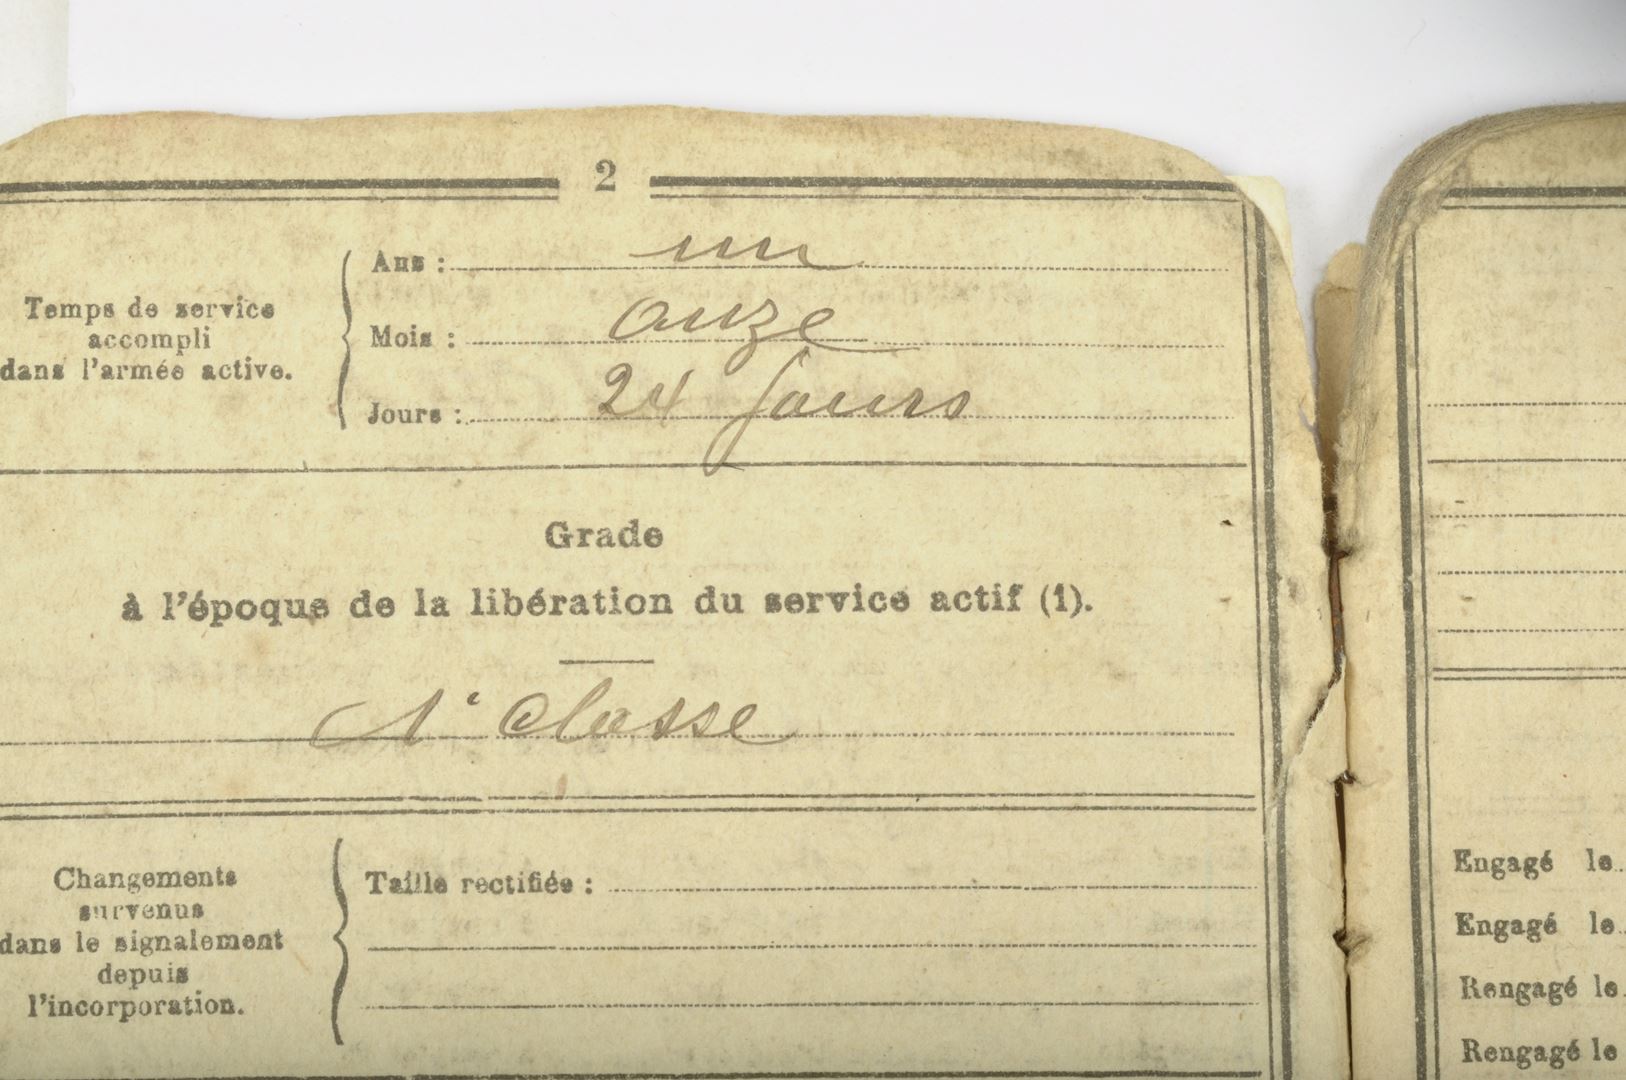 2
Temps de service
accompli
dans l'armée active.
Ans : un
Mois : onze
Jours : 24 jours
Grade
à l'époque de la libération du service actif (1).
1e classe
Changements
survenus
dans le signalement
depuis
l'incorporation.
Taille rectifiée :
Engagé le
Engagé le
Rengagé le
Rengagé le